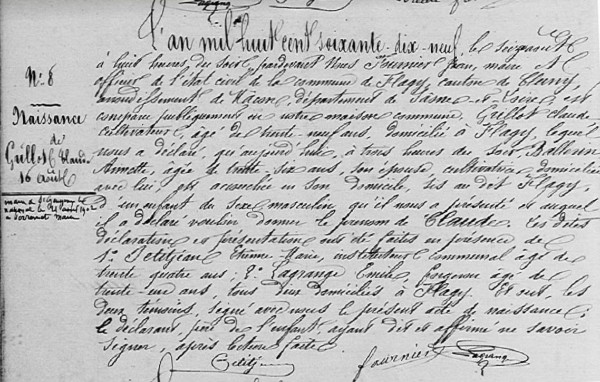 N° 8
Naissance
de
Grillot Claude
16 août
L'an mil huit cent soixante-dix-neuf, le seize août
à huit heures du soir, pardevant Nous Fournier Jean, maire et
officier de l'état civil de la commune de Flagy, canton de Cluny,
arrondissement de Macon, département de Saone-et-Loire, est
comparu publiquement en notre maison commune, Grillot Claude
cultivateur, âgé de trente-neuf ans, domicilié à Flagy, lequel
nous a déclaré, qu'aujourd'hui, à trois heures du soir,
Annette, âgée de trente-six ans, son épouse, cultivatrice, domiciliée
avec lui, est accouchée en son domicile, sis au dit Flagy,
d'un enfant du sexe masculin, qu'il nous a présenté et auquel
il a déclaré vouloir donner le prénom de Claude. Les dites
déclaration et présentation ont été faites en présence de
1° Petitjean Etienne-Marie, instituteur communal âgé de
trente quatre ans; 2° Lagrange Emile, forgeron âgé de
trente-un ans, tous deux domiciliés à Flagy. Et ont, les
deux témoins, signé avec nous le présent acte de naissance;
le déclarant, père de l'enfant, ayant dit et affirmé ne savoir
signer, après lecture faite
Petitjean
Fournier
Lagrange